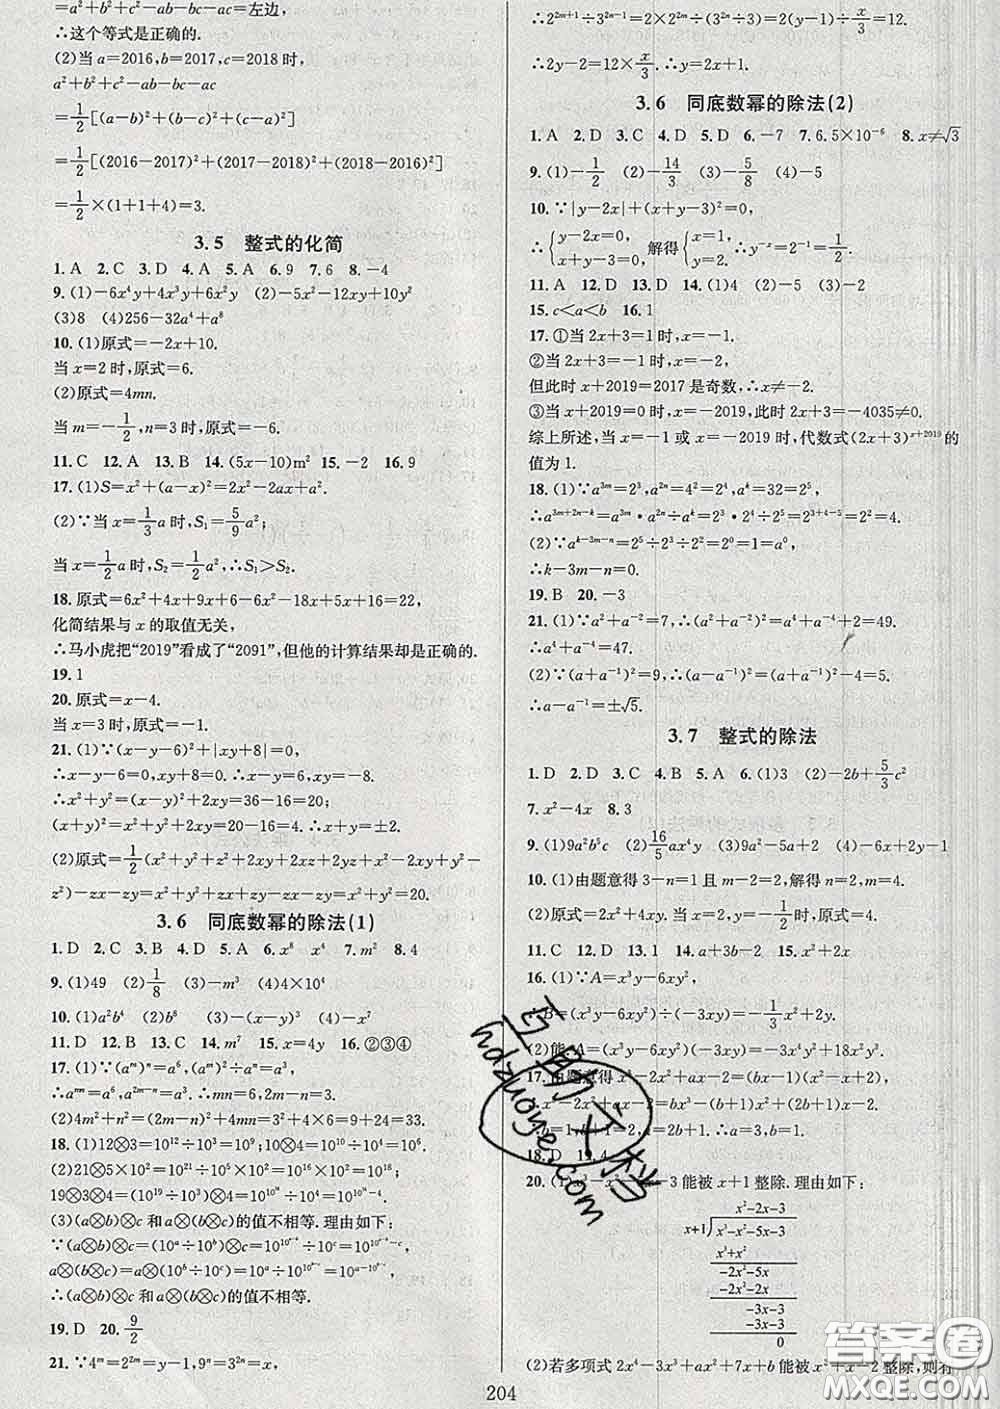 =a²+b²+c²-ab-bc-ac=左边,
∴这个等式是正确的.
(2)当 a=2016,b=2017,c=2018 时,
a²+b²+c²-ab-bc-ac
=1/2[(a-b)²+(b-c)²+(c-a)²]
=1/2[(2016-2017)²+(2017-2018)²+(2018-2016)²]
=1/2×(1+1+4)=3.
3.5 整式的化简
1.A 2.C 3.D 4.A 5.A 6.9 7.6 8.-4
9.(1)-6x⁴y+4x³y+6x²y (2)-5x²-12xy+10y²
(3)8 (4)256-32a⁴+a⁸
10.(1)原式=-2x+10.
当 x=2 时,原式=6.
(2)原式=4mn.
当 m=-1/2,n=3 时,原式=-6.
11.C 12.A 13.B 14.(5x-10)m² 15.-2 16.9
17.(1)S=x²+(a-x)²=2x²-2ax+a².
(2)∵当 x=1/3a 时,S₁=5/9a²;
当 x=1/2a 时,S₂=1/2a²,∴S₁>S₂.
18.原式=6x²+4x+9x+6-6x²-18x+5x+16=22,
化简结果与 x 的取值无关,
∴马小虎把“2019”看成了“2091”,但他的计算结果却是正确的.
19.1
20.原式=x-4.
当 x=3 时,原式=-1.
21.(1)∵(x-y-6)²+|xy+8|=0,
∴x-y-6=0,xy+8=0,∴x-y=6,xy=-8.
∴x²+y²=(x-y)²+2xy=36-16=20;
(x+y)²=x²+y²+2xy=20-16=4.∴x+y=±2.
(2)原式=1/2(x²+y²+z²-2xy-2zx+2zy+xy+y²-
z²)-zx-zy=x²+y²-zx+zy-zx-zy=x²+y²=20.
3.6 同底数幂的除法(1)
1.D 2.C 3.B 4.D 5.A 6.x⁸ x⁴ 7.m² 8.4
9.(1)49 (2)1/8 (3)-m³ (4)4×10⁴
10.(1)a²b⁴ (2)b⁶ (3)-(x-y)³ (4)-x⁷
11.D 12.A 13.C 14.m⁷ 15.x=4y 16.②③④
17.(1)∵(aᵐ)ⁿ=a⁶,(aᵐ)²÷aⁿ=a³,
∴aᵐⁿ=a⁶,a²ᵐ⁻ⁿ=a³.∴mn=6,2m-n=3.
(2)4m²+n²=(2m-n)²+4mn=3²+4×6=9+24=33.
18.(1)12⊗3=10¹²÷10³=10⁹;10⊗4=10¹⁰÷10⁴=10⁶.
(2)21⊗5=10²¹÷10⁵=10¹⁶,17⊗10²=10¹⁶
19⊗3⊗1=(10¹⁹÷10³)⊗1=10¹⁶⊗1
(3)(a⊗b)⊗c 和 a⊗(b⊗c)的值不相等.理由如下:
∵(a⊗b)⊗c=(10ᵃ÷10ᵇ)⊗c=10ᵃ⁻ᵇ⊗c
a⊗(b⊗c)=a⊗(10ᵇ÷10ᶜ)=a⊗10ᵇ⁻ᶜ
∴(a⊗b)⊗c 和 a⊗(b⊗c)的值不相等.
19.D 20.9/2
21.∵4ᵐ=2²ᵐ=y,9ⁿ=3²ⁿ=x,
∴2²ᵐ⁺¹÷3²ⁿ⁻¹=2×2²ᵐ÷(3²ⁿ÷3)=2(y-1)÷x/3=12.
∴2y-2=12×x/3.∴y=2x+1.
3.6 同底数幂的除法(2)
1.A 2.D 3.C 4.D 5.D 6.-7 7.6.5×10⁻⁶ 8.x≠√3
9.(1)-1/2 (2)-14/3 (3)-5/8 (4)-5
10.∵|y-2x|+(x+y-3)²=0,
∴{y-2x=0, x+y-3=0, 解得{x=1, y=2. ∴y⁻ˣ=2⁻¹=1/2.
11.A 12.D 13.D 14.(1)4 (2)-5 (3)-2
15.c<a<b 16.1
17.①当 2x+3=1 时,x=-1.
②当 2x+3=-1 时,x=-2.
但此时 x+2019=2017 是奇数,∴x≠-2.
③当 x+2019=0 时,x=-2019,此时 2x+3=-4035≠0.
综上所述,当 x=-1 或 x=-2019 时,代数式(2x+3)ˣ⁺²⁰¹⁹的
值为 1.
18.(1)∵a³ᵐ=2³,a²ⁿ=4²=2⁴,aᵏ=32=2⁵,
∴a³ᵐ⁺²ⁿ⁻ᵏ=a³ᵐ·a²ⁿ÷aᵏ=2³·2⁴÷2⁵=2³⁺⁴⁻⁵=2²=4.
(2)∵aᵏ⁻³ᵐ⁻ⁿ=2⁵÷2³÷2²=2⁰=1=a⁰,
∴k-3m-n=0.
19.B 20.-3
21.(1)∵a²+a⁻²=7,∴(a²+a⁻²)²=a⁴+a⁻⁴+2=49.
∴a⁴+a⁻⁴=47.
(2)∵(a+a⁻¹)²=9,∴(a-a⁻¹)²=(a+a⁻¹)²-4=5.
∴a-a⁻¹=±√5.
3.7 整式的除法
1.D 2.D 3.C 4.B 5.A 6.(1)3 (2)-2b+5/3c²
7.x²-4x 8.3
9.(1)9a²b⁵c (2)16/5ax⁴y (3)9a²-5a+2 (4)-6x+2y-1
10.(1)由题意得 3-n=1 且 m-2=2,解得 n=2,m=4.
(2)原式=2m²-m.当 m=4 时,原式=28.
11.C 12.D 13.1 14.a+3b-2 15.x²+2x
16.(1)∵A=x³y-6xy²,
∴B=(x³y-6xy²)÷(-3xy)=-1/3x²+2y.
(2)能.A=(x³y-6xy²)·(-3xy)=-3x⁴y²+18x²y³.
17.由题意得 x⁴-2x²+ax=bx-(b+1)x²+x⁴,
18.D 19.4
x+1 能被 x+1 整除.理由如下:
x²-2x-3
x+1 x³-x²-5x-3
x³+x²
-2x²-5x
-2x²-2x
-3x-3
-3x-3
0
(2)若多项式 2x⁴-3x³+ax²+7x+b 能被 x²+x-2 整除,则将
204
互助文档
hdzuoye.com
答案圈
MXQE.COM